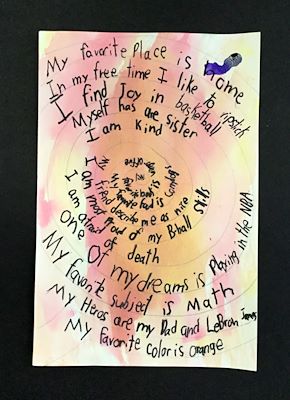 My favorite Place is Home
In my free time I like to ripstick
I find Joy in basketball
Myself has one sister
I am kind
My favorite food is
My friend describe me as nice
I am most proud of my Bball skills
I am afraid of death
One of my dreams is Playing in the NBA
My favorite subject is Math
My Heros are my Dad and LeBron James
My favorite color is orange